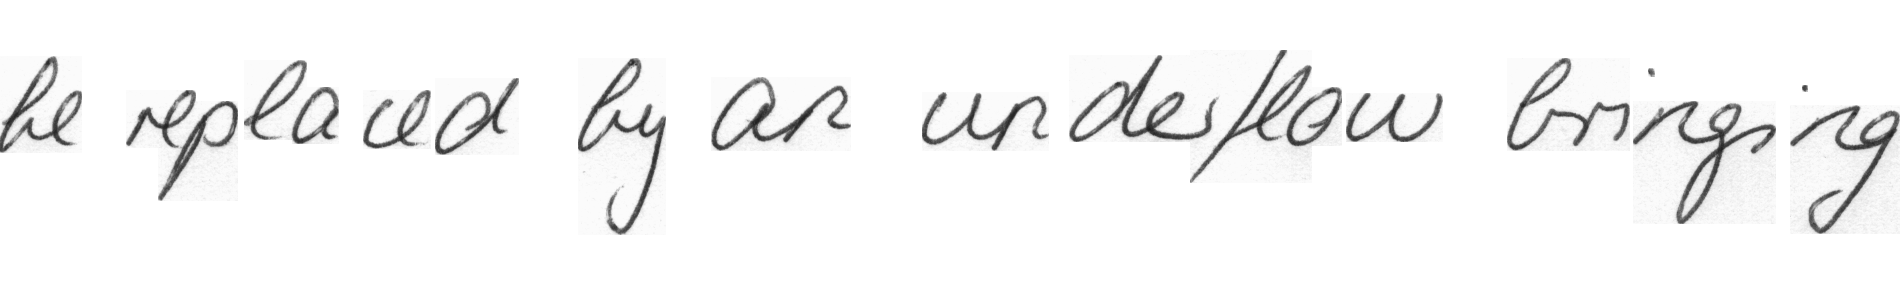 be replaced by an underflow bringing